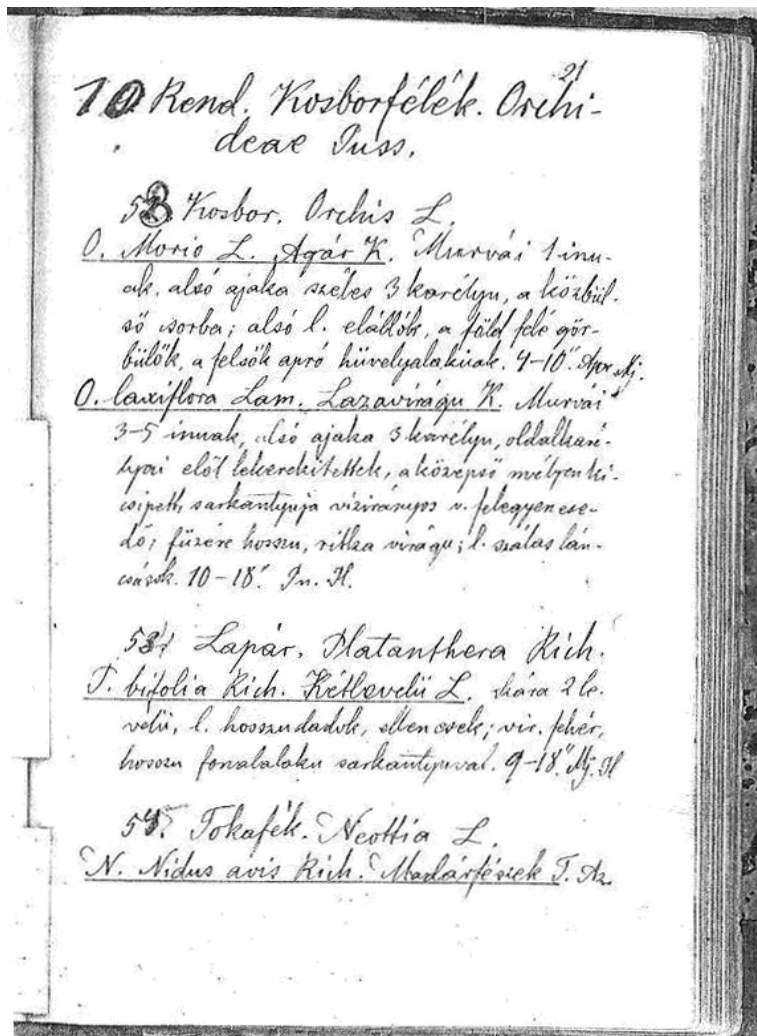 21
10. Rend. Kosborfélék. Orchi-
deae Juss.
53. Kosbor. Orchis L.
O. Morio L. Agár K. Murvái 1 inu-
ak, alsó ajaka széles 3 karélyu, a közbül-
ső csorba; alsó l. elállók, a föld felé gör-
bülők, a felsők apró hüvelyalakúak. 4-10". Apr. Mj.
O. laxiflora Lam. Lazavirágu K. Murvái
3-5 inuak, alsó ajaka 3 karélyu, oldalkaré-
lyai elől lekerekitettek, a középső mélyen ki-
csipett, sarkantyuja vizirányos v. felegyenese-
dő; füzére hosszu, ritka virágu; l. szálas lán-
csások. 10-18". Jn. Jl.
54. Lapár. Platanthera Rich.
P. bifolia Rich. Kétlevelü L. szára 2 le-
velü, l. hosszudadok, ellenesek; vir. fehér,
hosszu fonalalaku sarkantyuval. 9-18". Mj. Jl
55. Tokafék. Neottia L.
N. Nidus avis Rich. Madárfészek T. Az